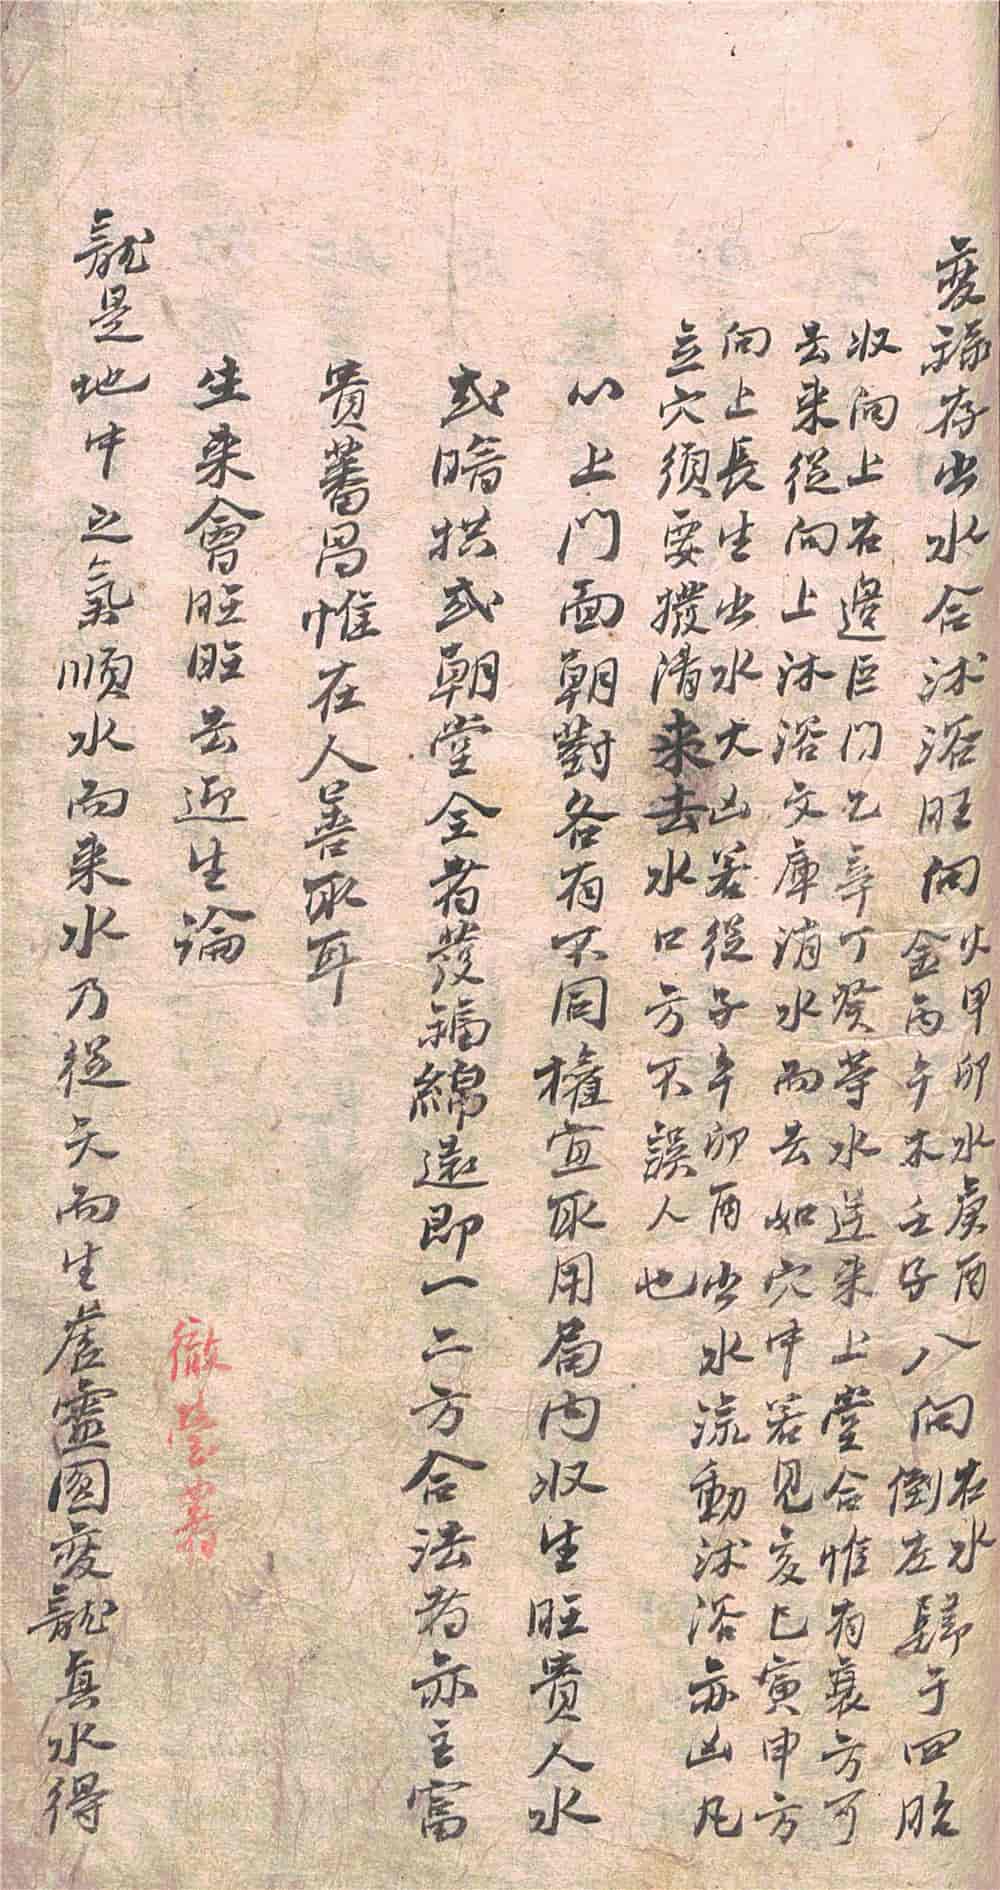 變祿存出水合沐浴旺向火甲卯水庚酉金丙午木壬子八向右水倒左歸于四胎
収向上右邊巨门乙辛丁癸等水送来上堂合惟有衰方可
去来從向上沐浴文庫消水而去如穴中若見亥巳寅申方
向上長生出水大凶若從子午卯酉出水流動沐浴亦凶凡
立穴須要撥清来去水口方不誤人也
以上门面朝對各有不同權宜取用局内収生旺貴人水
或暗拱或朝堂全者發福綿遠即一二方合法者亦主富
貴蕃昌惟在人善取耳
生来會旺旺去迎生論
徹瑩署
龍是地中之氣順水而来水乃從天而生虛靈圓變龍真水得